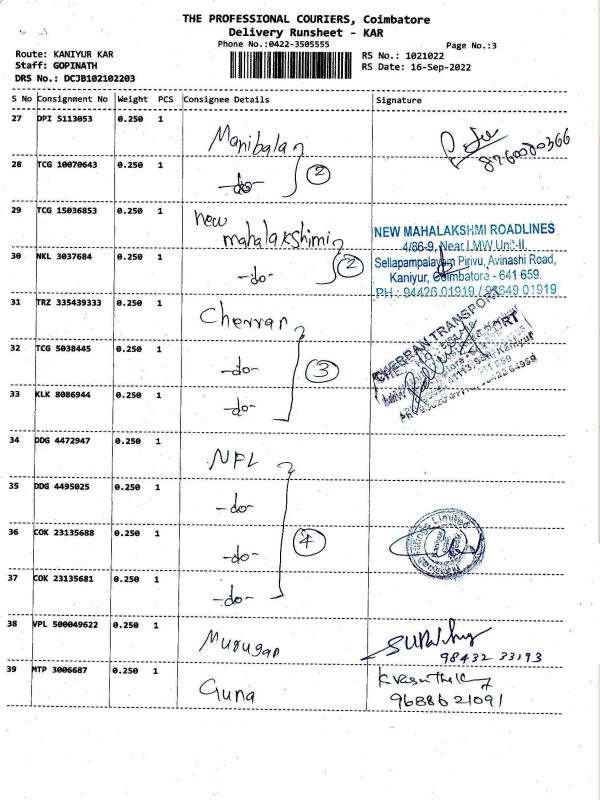 THE PROFESSIONAL COURIERS, Coimbatore
Delivery Runsheet - KAR
Phone No.:0422-3505555
Page No.:3
Route: KANIYUR KAR
Staff: GOPINATH
DRS No.: DCJB102102203
RS No.: 1021022
RS Date: 16-Sep-2022
S No Consignment No Weight PCS Consignee Details Signature
27 DPI 5113053 0.250 1 Manibala
28 TCG 10070643 0.250 1 -do- 2
29 TCG 15036853 0.250 1 new mahalakshimi
NEW MAHALAKSHMI ROADLINES
4/86-9, Near LMW Unit-II,
Sellapampalayam Pirivu, Avinashi Road,
Kaniyur, Coimbatore - 641 659.
PH : 94426 01919 / 93649 01919
30 NKL 3037684 0.250 1 -do- 2
31 TRZ 335439333 0.250 1 Cherran
CHERRAN TRANSPORT
32 TCG 5038445 0.250 1 -do- 3
33 KLK 8086944 0.250 1 -do-
34 DDG 4472947 0.250 1 NFL
35 DDG 4495025 0.250 1 -do-
36 COK 23135688 0.250 1 -do- 4
37 COK 23135681 0.250 1 -do-
38 VPL 500049622 0.250 1 Murugan
98432 33193
39 MTP 3006687 0.250 1 Guna
9688621091